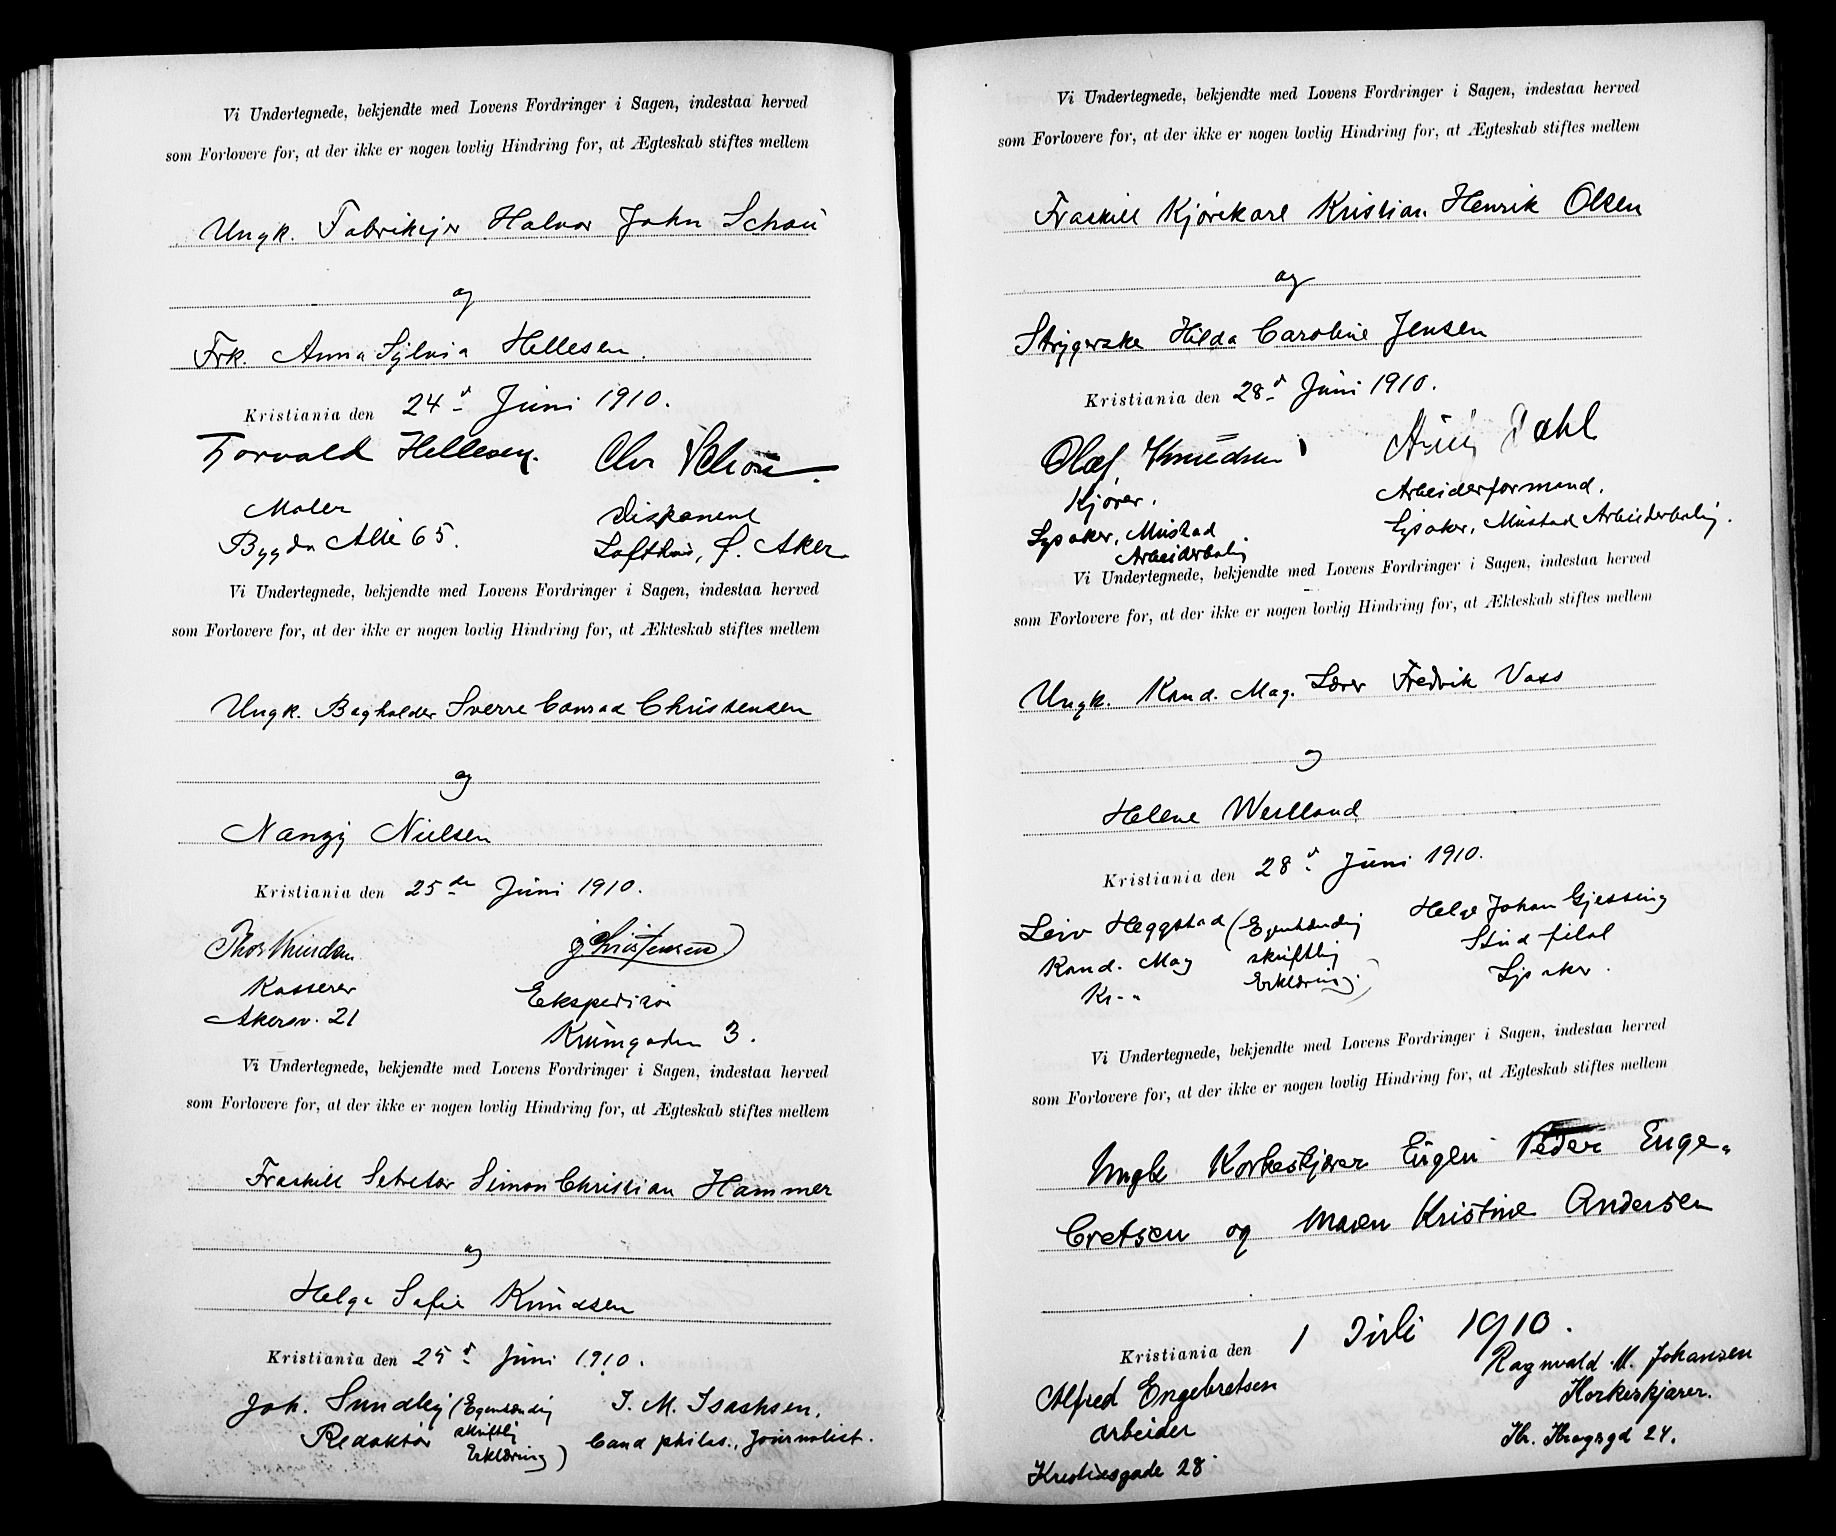 Vi Undertegnede, bekjendte med Lovens Fordringer i Sagen, indestaa herved
som Forlovere for, at der ikke er nogen lovlig Hindring for, at Ægteskab stiftes mellem
Ungk. Fabrikejer Halvor John Schou
og
Frk. Anna Sylvia Hellesen.
Kristiania den 24d Juni 1910.
Torvald Hellesen. Chr Schou.
Maler Disponent
Bygdø Alle 65. Lofthus, Ø. Aker
Vi Undertegnede, bekjendte med Lovens Fordringer i Sagen, indestaa herved
som Forlovere for, at der ikke er nogen lovlig Hindring for, at Ækteskab stiftes mellem
Ungk. Bogholder Sverre Conrad Christensen
og
Nanzy Nielsen
Kristiania den 25de Juni 1910.
Thor Knudsen J. Christensen
Kasserer Ekspeditør
Akersv. 21 Krumgaden 3.
Vi Undertegnede, bekjendte med Lovens Fordringer i Sagen, indestaa herved
som Forlovere for, at der ikke er nogen lovlig Hindring for, at Ægteskab stiftes mellem
Fraskilt Sekretær Simon Christian Hammer
og
Helga Sofie Knudsen
Kristiania den 25d Juni 1910.
Joh. Sundby (Egenhændig I. M. Isachsen,
Redaktør skriftlig Cand philos., Journalist.
Erklæring)
Vi Undertegnede, bekjendte med Lovens Fordringer i Sagen, indestaa herved
som Forlovere for, at der ikke er nogen lovlig Hindring for, at Ægteskab stiftes mellem
Fraskilt Kjørekarl Kristian Henrik Olsen
og
Strygerske Hilda Caroline Jensen
Kristiania den 28d Juni 1910.
Olaf Knudsen Dahl
Kjører. Arbeiderformand.
Lysaker, Mustad Lysaker, Mustad Arbeiderbolig.
Arbeiderbolig
Vi Undertegnede, bekjendte med Lovens Fordringer i Sagen, indestaa herved
som Forlovere for, at der ikke er nogen lovlig Hindring for, at Ækteskab stiftes mellem
Ungk. Kand. Mag. Lærer Fredrik Voss
og
Helene Westland
Kristiania den 28d Juni 1910.
Leiv Heggstad (Egenhændig Helge Johan Gjessing
Kand. Mag skriftlig Stud filol
Kr.a Erklæring.) Lysaker.
Vi Undertegnede, bekjendte med Lovens Fordringer i Sagen, indestaa herved
som Forlovere for, at der ikke er nogen lovlig Hindring for, at Ægteskab stiftes mellem
Ungk Korkeskjærer Eugen Peder Enge-
bretsen og Maren Kristine Andersen
Kristiania den 1 Juli 1910.
Alfred Engebretsen Ragnvald M. Johansen
Arbeider Korkeskjærer.
Kristiesgade 28 Kr. Krogsgd 24.